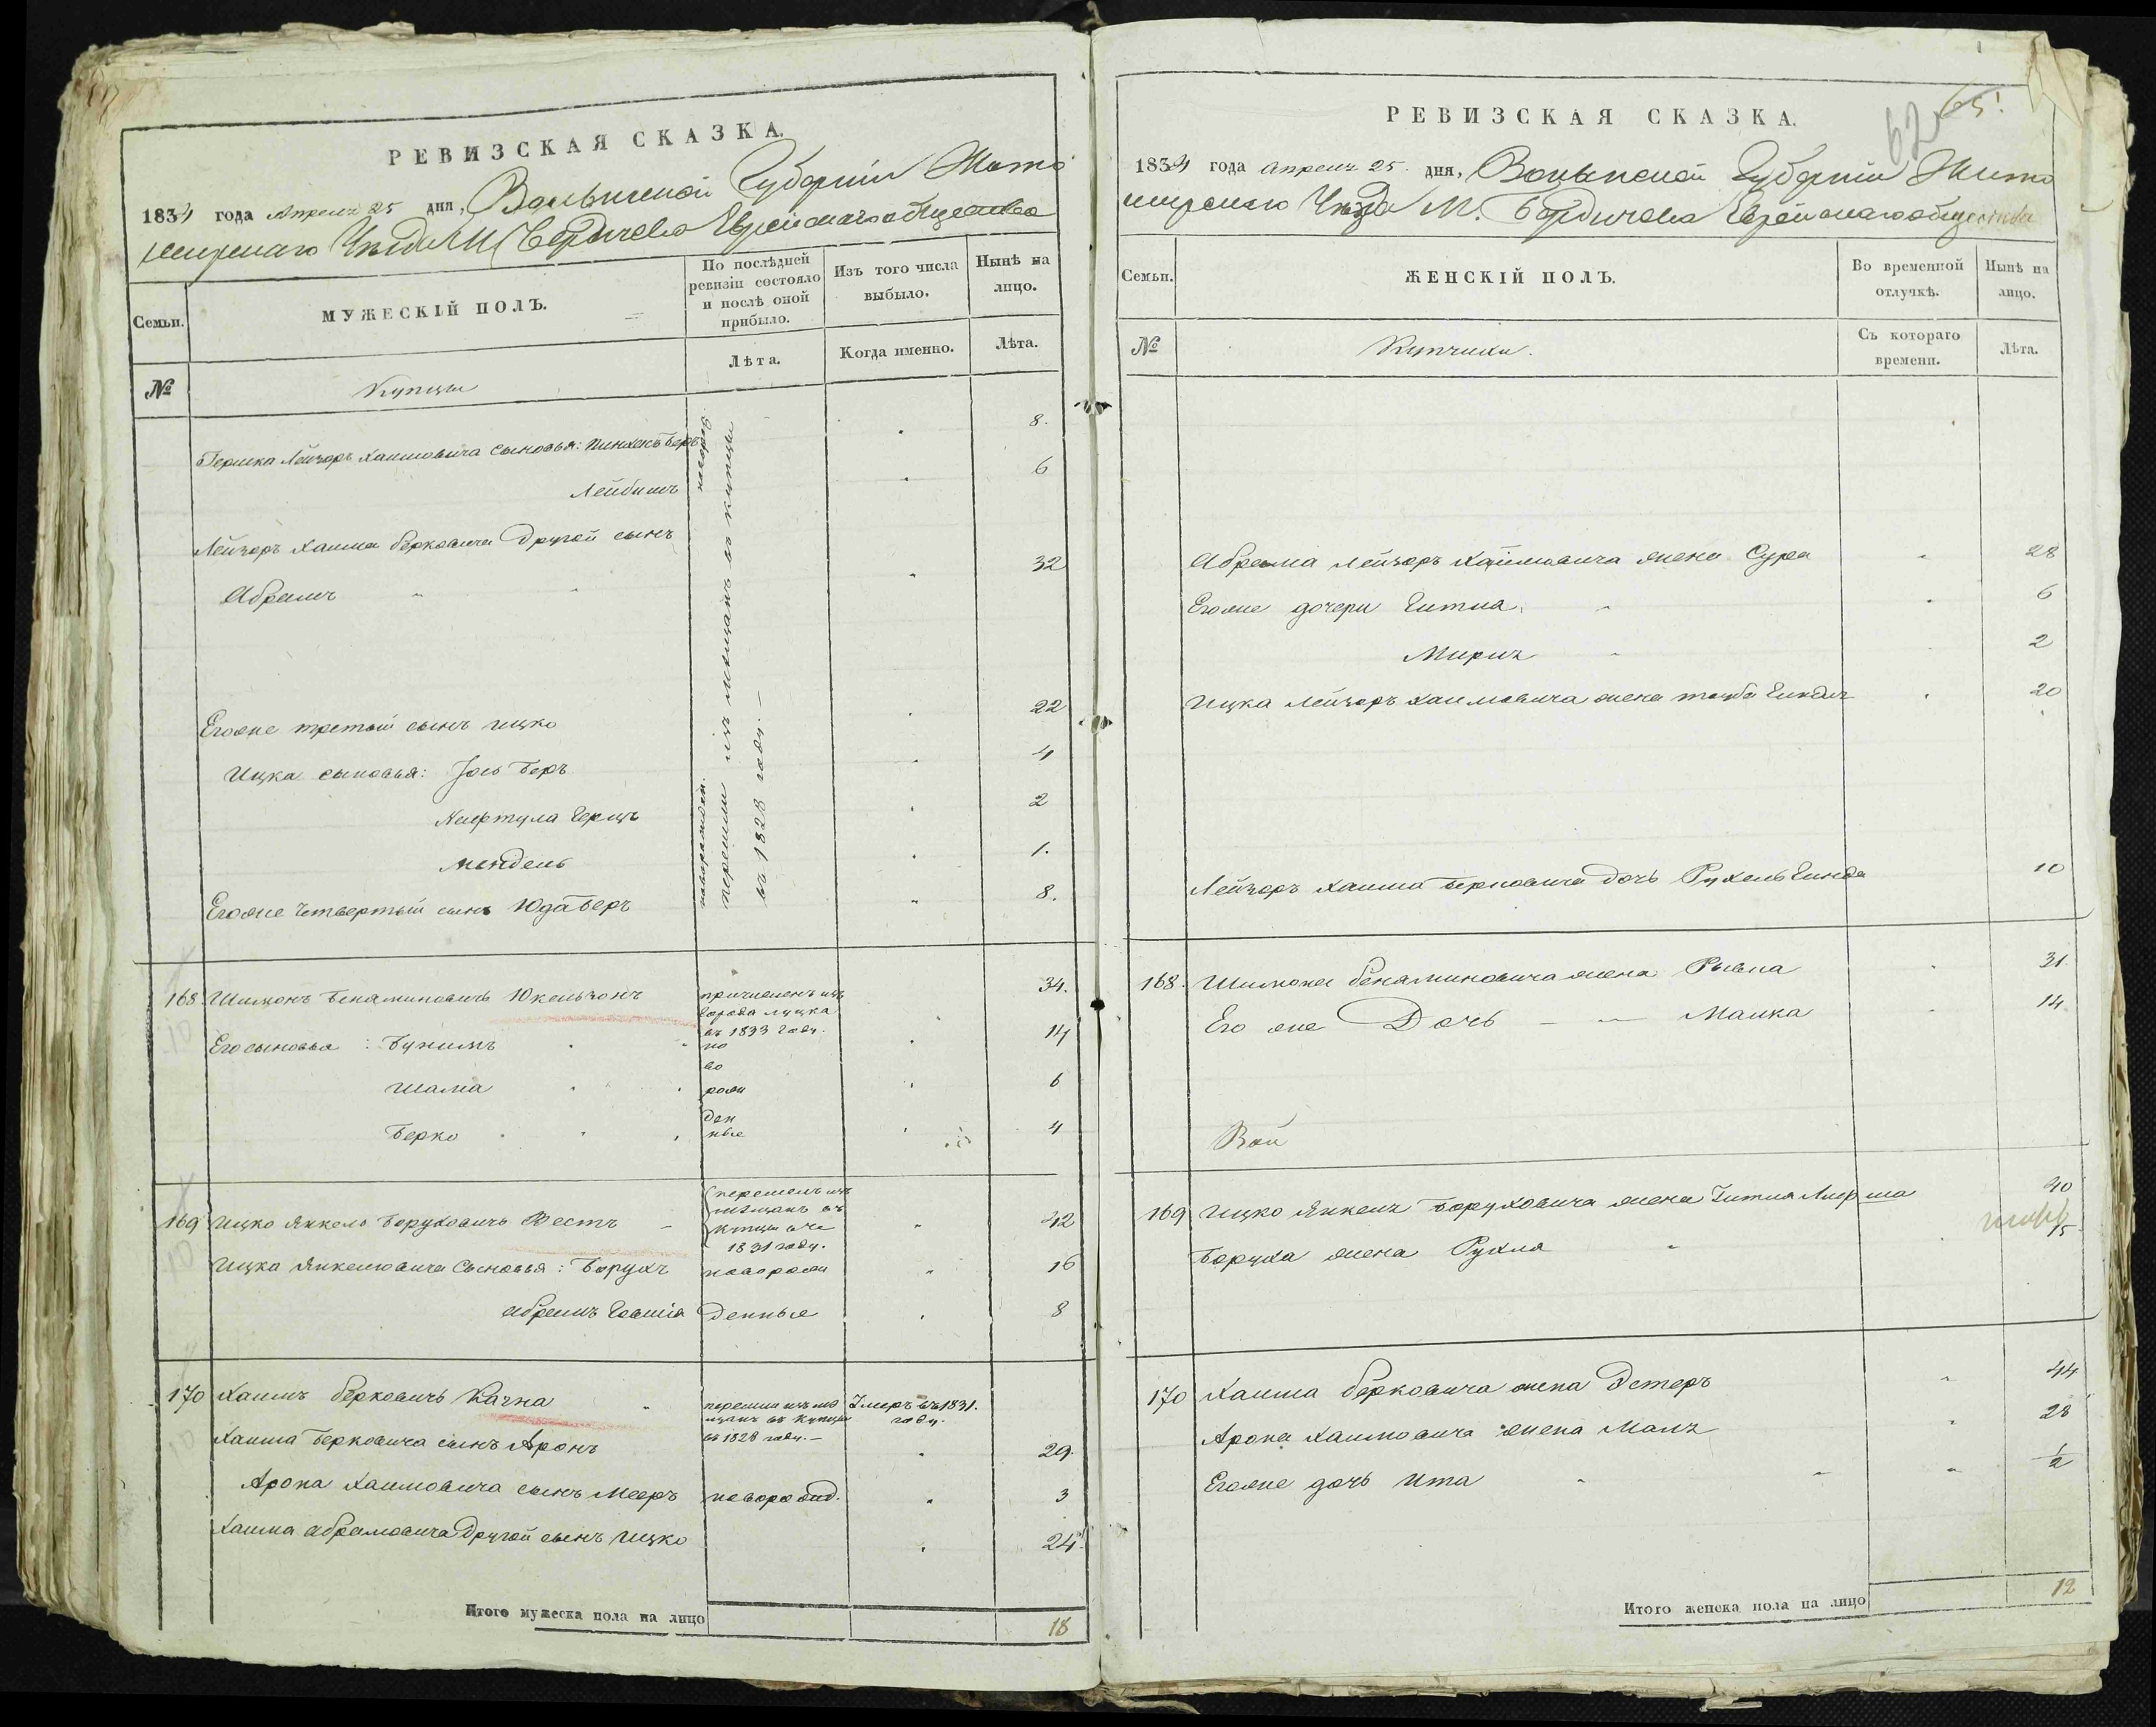 РЕВИЗСКАЯ СКАЗКА.
1834 года Апреля 25 дня, Волынской Губернiи Жито
мирскаго Уезда М. Бердичева Еврейскаго общества
Семьи.
МУЖЕСКIЙ ПОЛЪ.
По послѣдней ревизiи состояло и послѣ оной прибыло.
Изъ того числа выбыло.
Нынѣ на лицо.
№
Купцы
Лѣта.
Когда именно.
Лѣта.
Гершка Лейзоръ Хаимовича сыновья: Пинхасъ Беръ 8.
Лейбишъ 6
Лейзоръ Хаима Берковича Другой сынъ
Абрамъ 32
Егоже третьй сынъ Ицко 22
Ицка сыновья: Iось Беръ 4
Нафтула Герцъ 2
Мендель 1.
Егоже Четвертый сынъ Юда Беръ 8.
новорожден.
перешли изъ мещанъ въ купцы
въ 1828 году.
168 Шимонъ Бенаминовичъ Юкельзонъ 34.
причисленъ изъ
города Луцка
въ 1833 году.
Его сыновья: Бунимъ 14
Шама 6
Берко 4
но
во
рож
ден
ные
169 Ицко Янкель Боруховичъ Вестъ 42
перешелъ изъ
мещанъ въ
купцы въ
1831 году.
Ицка Янкелевича Сыновья: Борухъ новорож 16
Абрамъ денные 8
170 Хаимъ Берковичъ Качка
перешли изъ ме
щанъ въ купцы
въ 1828 году.
Умеръ въ 1831.
году.
Хаима Берковича сынъ Аронъ 29.
Арона Хаимовича сынъ Мееръ новорожд. 3
Хаима Абрамовича Другой сынъ Ицко 24.
Итого мужеска пола на лицо 18
62
65!
РЕВИЗСКАЯ СКАЗКА.
1834 года Апреля 25 дня, Волынской Губернiи Жито
мирскаго Уезда М. Бердичева Еврейскаго общества
Семьи.
ЖЕНСКIЙ ПОЛЪ.
Во временной отлучкѣ.
Нынѣ на лицо.
№
Купчихи.
Съ котораго времени.
Лѣта.
Абрама Лейзоръ Хаимовича жена Сура 28
Егоже дочери Гитла 6
Миря 2
Ицка Лейзоръ Хаимовича жена 20
Лейзоръ Хаима Берковича Дочь Рухель Гинда 10
168. Шимона Бенаминовича жена Ривка 31
Его же Дочь Малка 14
169 Ицко Янкель Боруховича жена Гитля 40
Боруха жена Рухля 15
170 Хаима Берковича жена Эстеръ 44
Арона Хаимовича жена Маля 28
Егоже дочь Ита 1/2
Итого женска пола на лицо 12